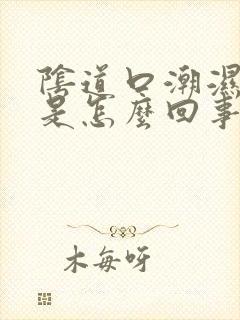 陰道口潮濕
是怎麼回事
木每呀